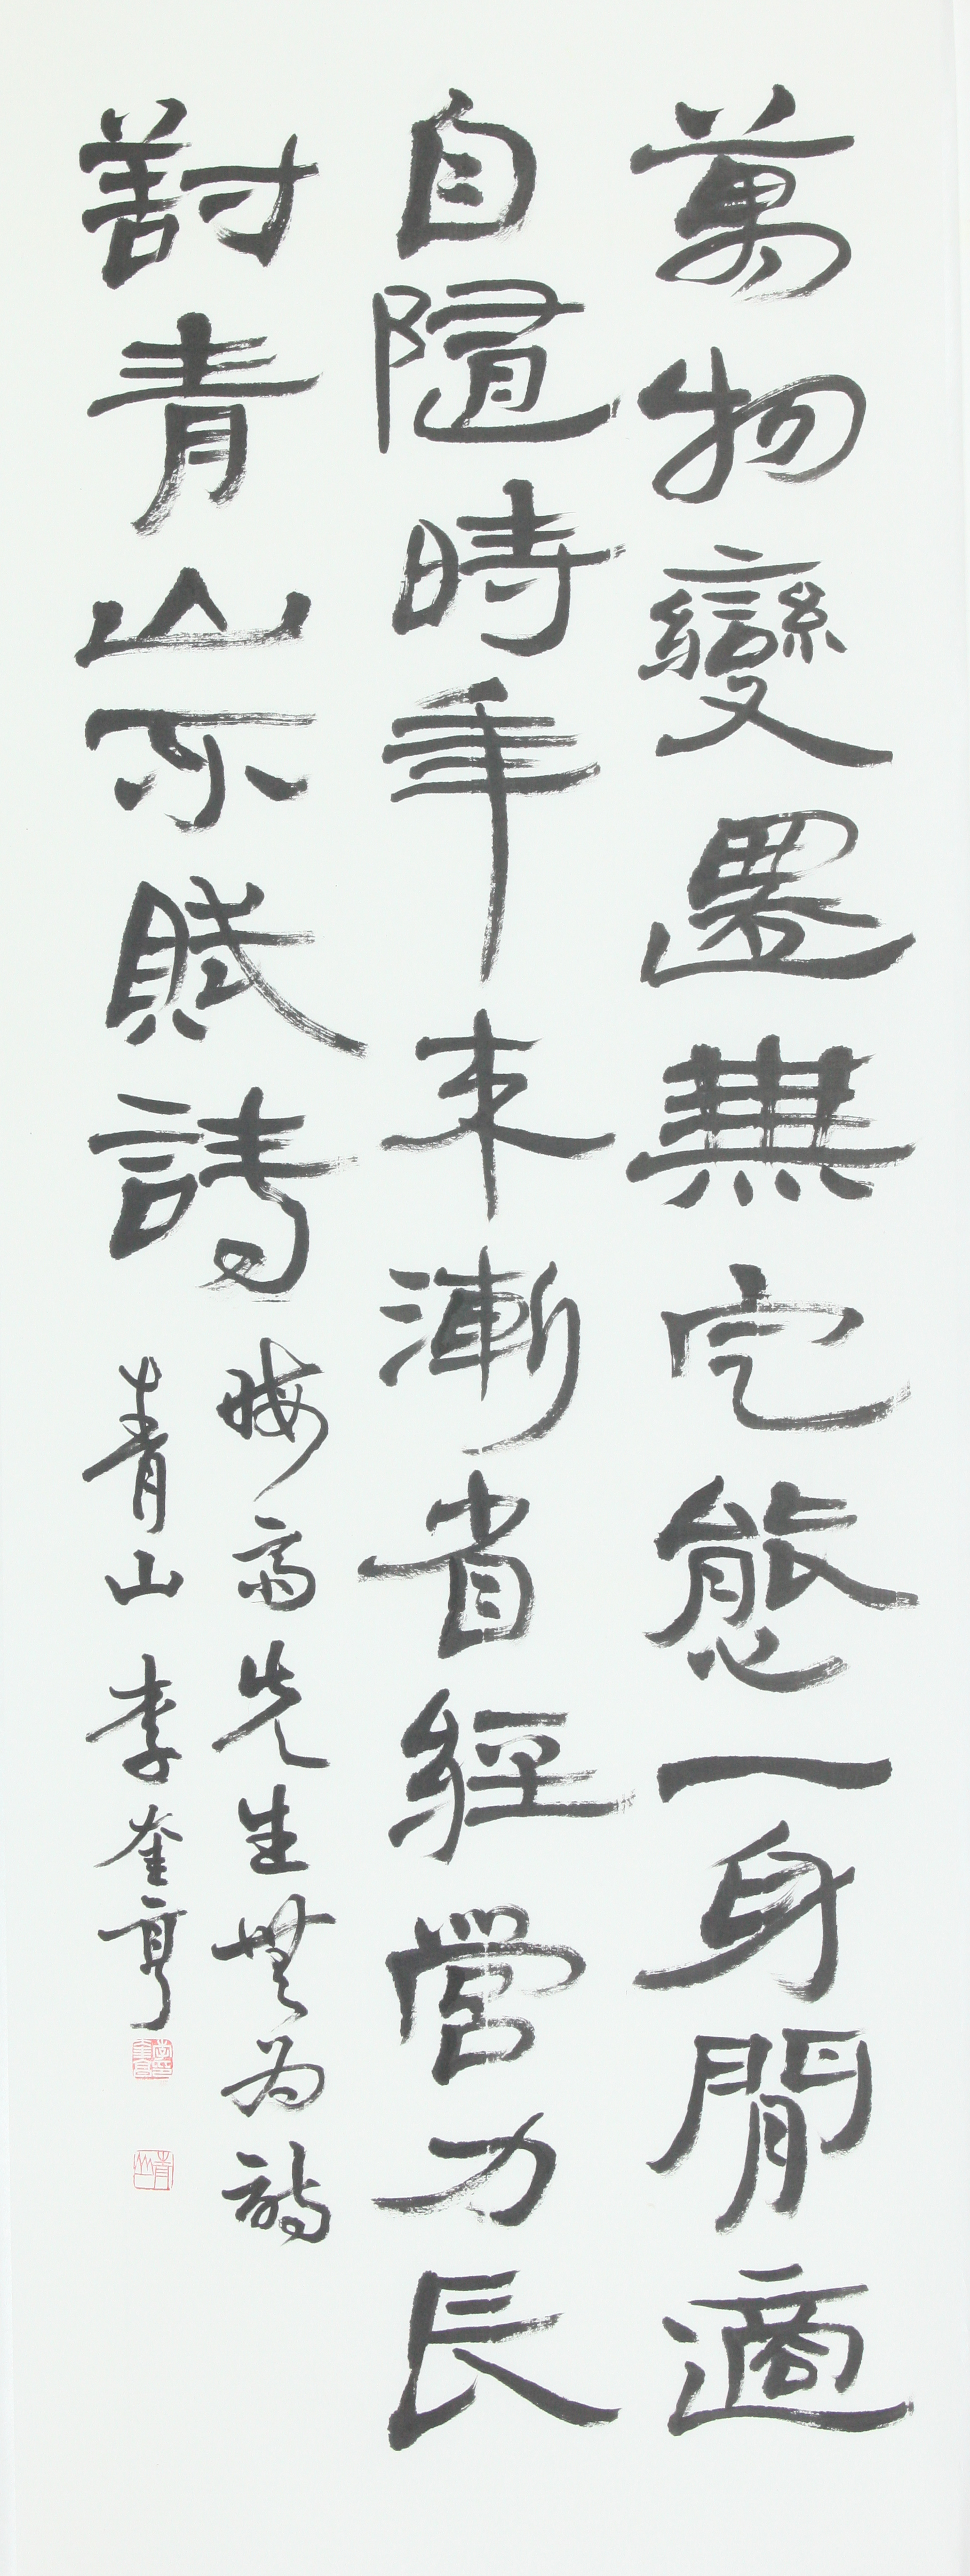 萬物變遷無定態一身閒適
自隨時年來漸省經營力長
對青山不賦詩
晦齋先生無為詩
青山 李奎亨
青山